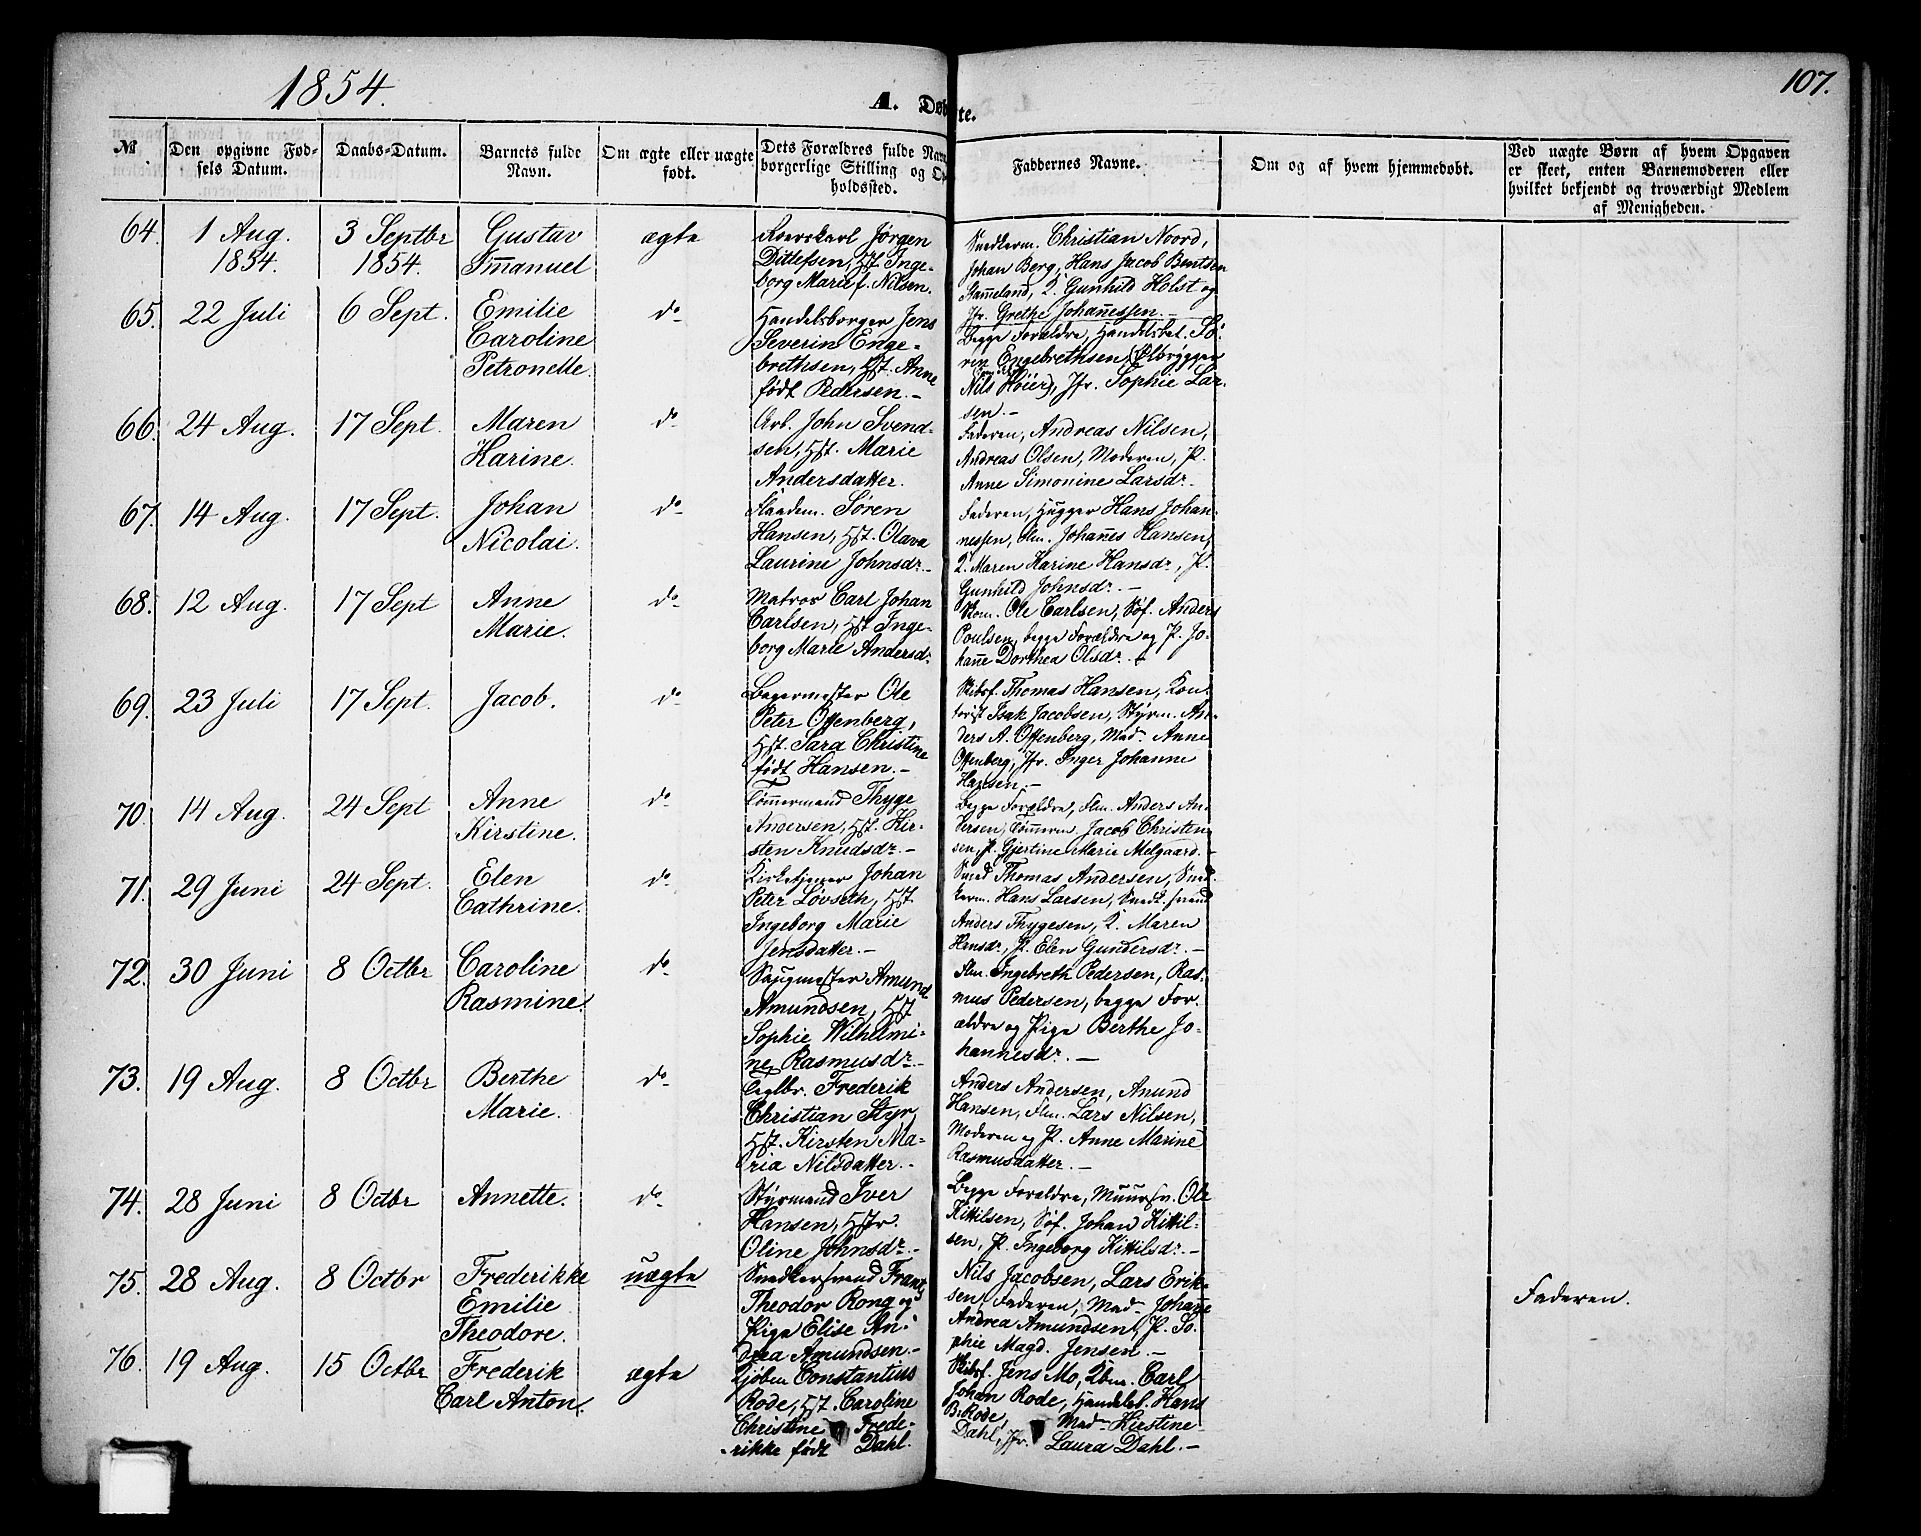 1854.
107.
A. Døbte.
№
Den opgivne Fødsels Datum.
Daabs-Datum.
Barnets fulde Navn.
Om ægte eller uægte født.
Dets Forældres fulde Navn, borgerlige Stilling og Opholdssted.
Faddernes Navne.
Om og af hvem hjemmedøbt.
Ved uægte Børn af hvem Opgaven
er skeet, enten Barnemoderen eller
hvilket bekjendt og troværdigt Medlem
af Menigheden.
64. 1 Aug. 1854. 3 Septbr 1854. Gustav Immanuel ægte
Jørgen
Ditlefsen, Hst. Inge-
borg Marie f. Nilsen.
Snedkerm. Christian Noord,
Johan Berg, Hans Jacob Bentsen
Stameland, K. Gunhild Holst og
Jfr. Grethe Johan̄essen.-
65. 22 Juli 6 Sept. Emilie Caroline Petronelle. do
Handelsborger Jens
Severin Enge-
brethsen, Hst. Anne
født Pedersen.-
Begge Forældre, Handelsbet. Sö-
ren Engebrethsen, Ølbrygger
Nils Höier, Jfr. Sophie Lar-
sen.-
66. 24 Aug. 17 Sept. Maren Karine. do
Arb. John Svend-
sen, Hst. Marie
Andersdatter.
Faderen, Andreas Nilsen,
Andreas Olsen, Moderen, P.
Anne Simonine Larsdr.
67. 14 Aug. 17 Sept. Johan Nicolai. do
Flaadem. Søren
Hansen, Hst. Olava
Laurine Johnsdr.-
Faderen, Hugger Hans Johan-
nessen, Flm. Johan̄es Hansen,
K. Maren Karine Hansdr, P.
Gunhild Johnsdr.-
68. 12 Aug. 17 Sept Anne Marie. do
Matros Carl Johan
Carlsen, Hst Inge-
borg Marie Andersdr.
Skom. Ole Carlsen, Søf. Anders
Poulsen, begge Forældre og P. Jo-
han̄e Dorthea Olsdr.-
69. 23 Juli 17 Sept. Jacob. do
Bagermester Ole
Peter Offenberg,
Hst. Sara Christine
født Hansen.-
Skibsf. Thomas Hansen, Kon-
torist Isak Jacobsen, Styrm. An-
ders A. Offenberg, Mad. Anne
Offenberg, Jfr. Inger Johanne
Hansen.-
70. 14 Aug. 24 Sept Anne Kirstine. do
Töm̄ermand Thyge
Andersen, Hst. Kir-
sten Knudsdr.-
Begge Forældre, Flm. Anders An-
dersen, Töm̄erm. Jacob Christen-
sen, P. Gjertine Marie Melgaard.-
71. 29 Juni 24 Sept. Elen Cathrine. do
Kirketjener Johan
Peter Lövseth, Hst
Ingeborg Marie
Jensdatter.-
Smed Thomas Andersen, Sned-
kerm. Hans Larsen, Snedk.svend
Anders Thygesen, K. Maren
Hansdr, P. Elen Gundersdr.-
72. 30 Juni 8 Octbr Caroline Rasmine. do
Saugmester Amund
Amundsen, Hst
Sophie Wilhelmi-
ne Rasmusdr.-
Flm. Ingebreth Pedersen, Ras-
mus Pedersen, begge For-
ældre og Pige Berthe Jo-
hannesdr.-
73. 19 Aug. 8 Octbr Berthe Marie. do
Frederik
Christian Styr,
Hst. Kirsten Ma-
ria Nilsdatter.-
Anders Andersen, Amund
Hansen, Flm. Lars Nilsen,
Moderen og P. Anne Marine
Rasmusdatter.-
74. 28 Juni 8 Octbr Annette. do
Styrmand Iver
Hansen, Hstr.
Oline Johnsdr.-
Begge Forældre, Muursv. Ole
Kittilsen, Søf. Johan Kittil-
sen, P. Ingeborg Kittilsdr.-
75. 28 Aug. 8 Octbr Frederikke Emilie Theodore. uægte
Snedkersvend Frantz
Theodor Rong og
Pige Elise An-
drea Amundsen.-
Nils Jacobsen, Lars Erik-
sen, Faderen, Mad. Johan̄e
Andrea Amundsen, P. So-
phie Magd. Jensen.-
Faderen.
76. 19 Aug. 15 Octbr Frederik Carl Anton. ægte
Kjöbm Constantius
Rode, Hst. Caroline
Christine Frede-
rikke født Dahl.
Skibsf. Jens Mo, Kbm. Carl
Johan Rode, Handelsb. Hans
B. Rode, Mad. Kirstine
Dahl, Jfr. Laura Dahl.-